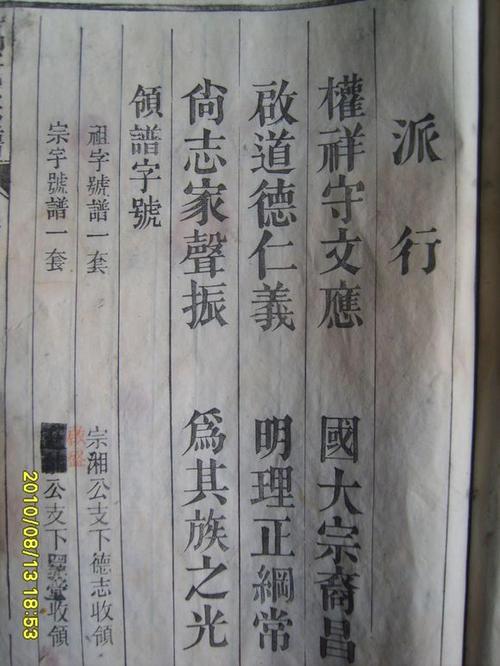 派行
權祥守文應 國大宗裔昌
啟道德仁義 明理正綱常
尙志家聲振 爲其族之光
領譜字號
祖字號譜一套 宗湘公支下德志收領
宗字號譜一套 公支下 堂收領
啟
2010/08/13 18:53